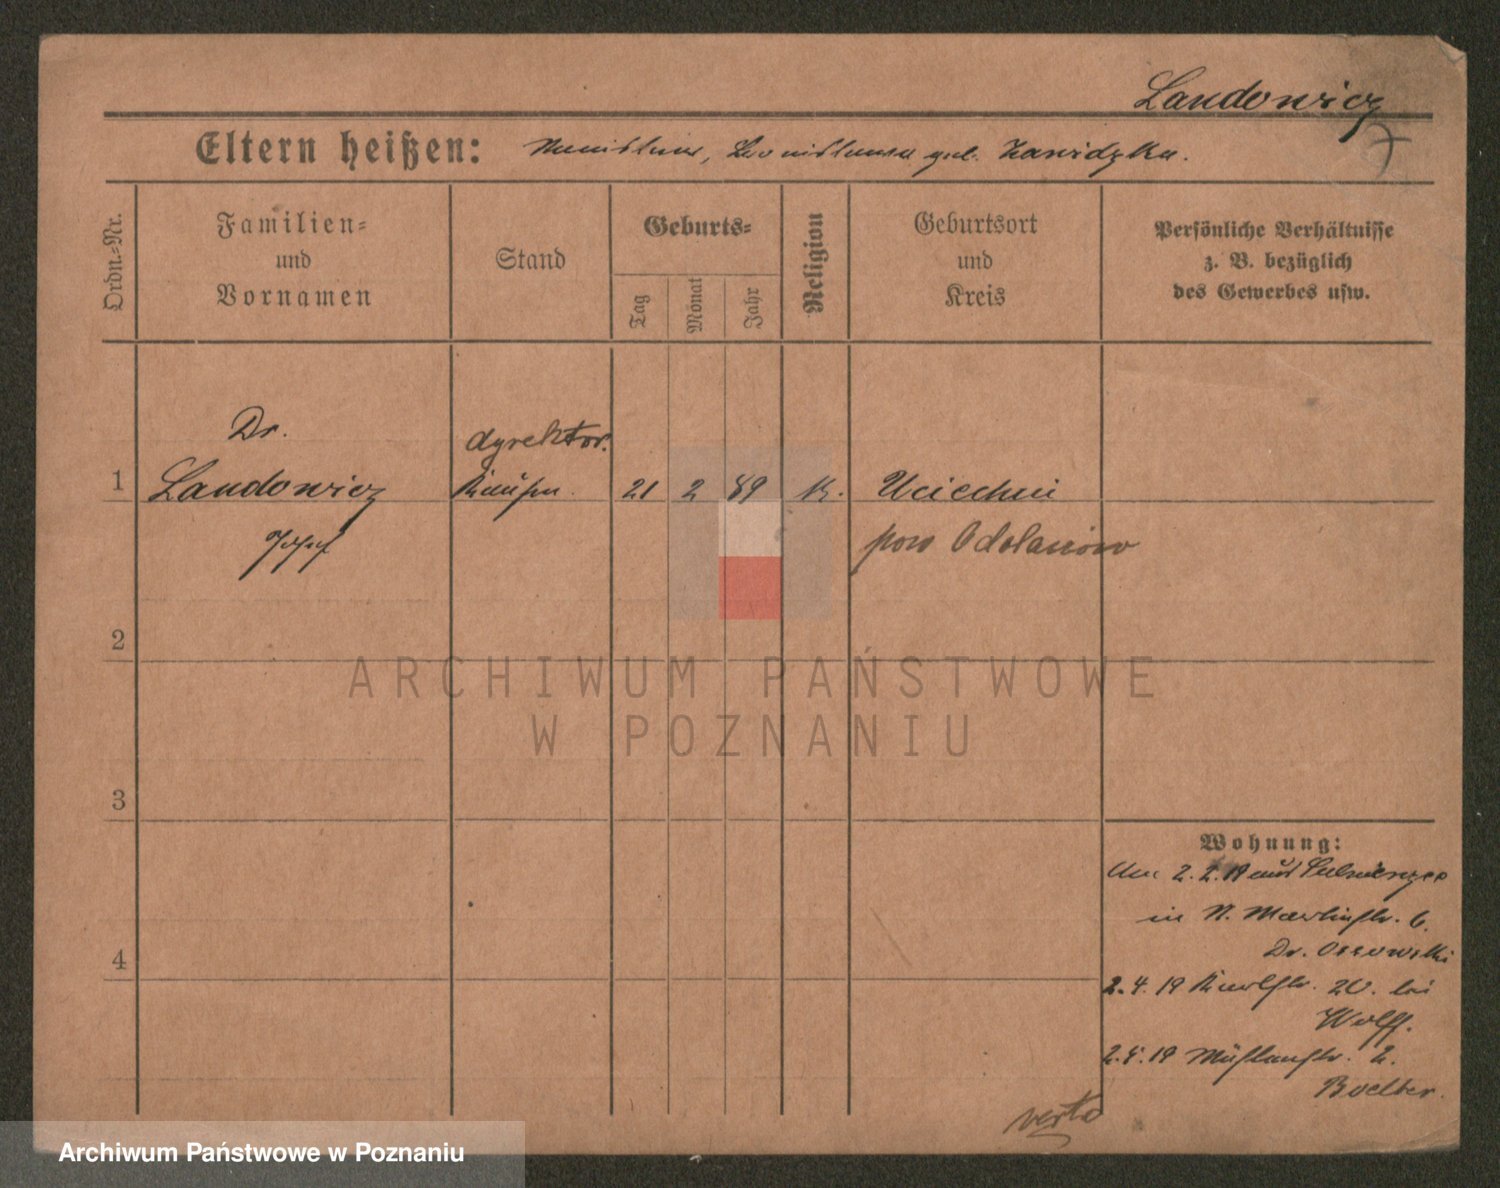 Landowicz
Eltern heißen: Stanislaus, Bronislawa geb. Zawidzka.
Ordn.-Nr.
Familien-
und
Vornamen
Stand
Geburts-
Tag
Monat
Jahr
Religion
Geburtsort
und
Kreis
Persönliche Verhältnisse
z. B. bezüglich
des Gewerbes usw.
Dr.
dyrektor.
1 Landowicz Kaufm. 21 2 89 K. Uciechow
Josef pow Odolanów
2
3
4
ARCHIWUM PAŃSTWOWE
W POZNANIU
Wohnung:
2. 2. 19 aus
in St. Martinstr. 6.
Dr. Ossowski
2. 4. 19 20. bei
Wolff.
2. 4. 19 Mühlenstr. 2.
Boelter.
verte
Archiwum Państwowe w Poznaniu